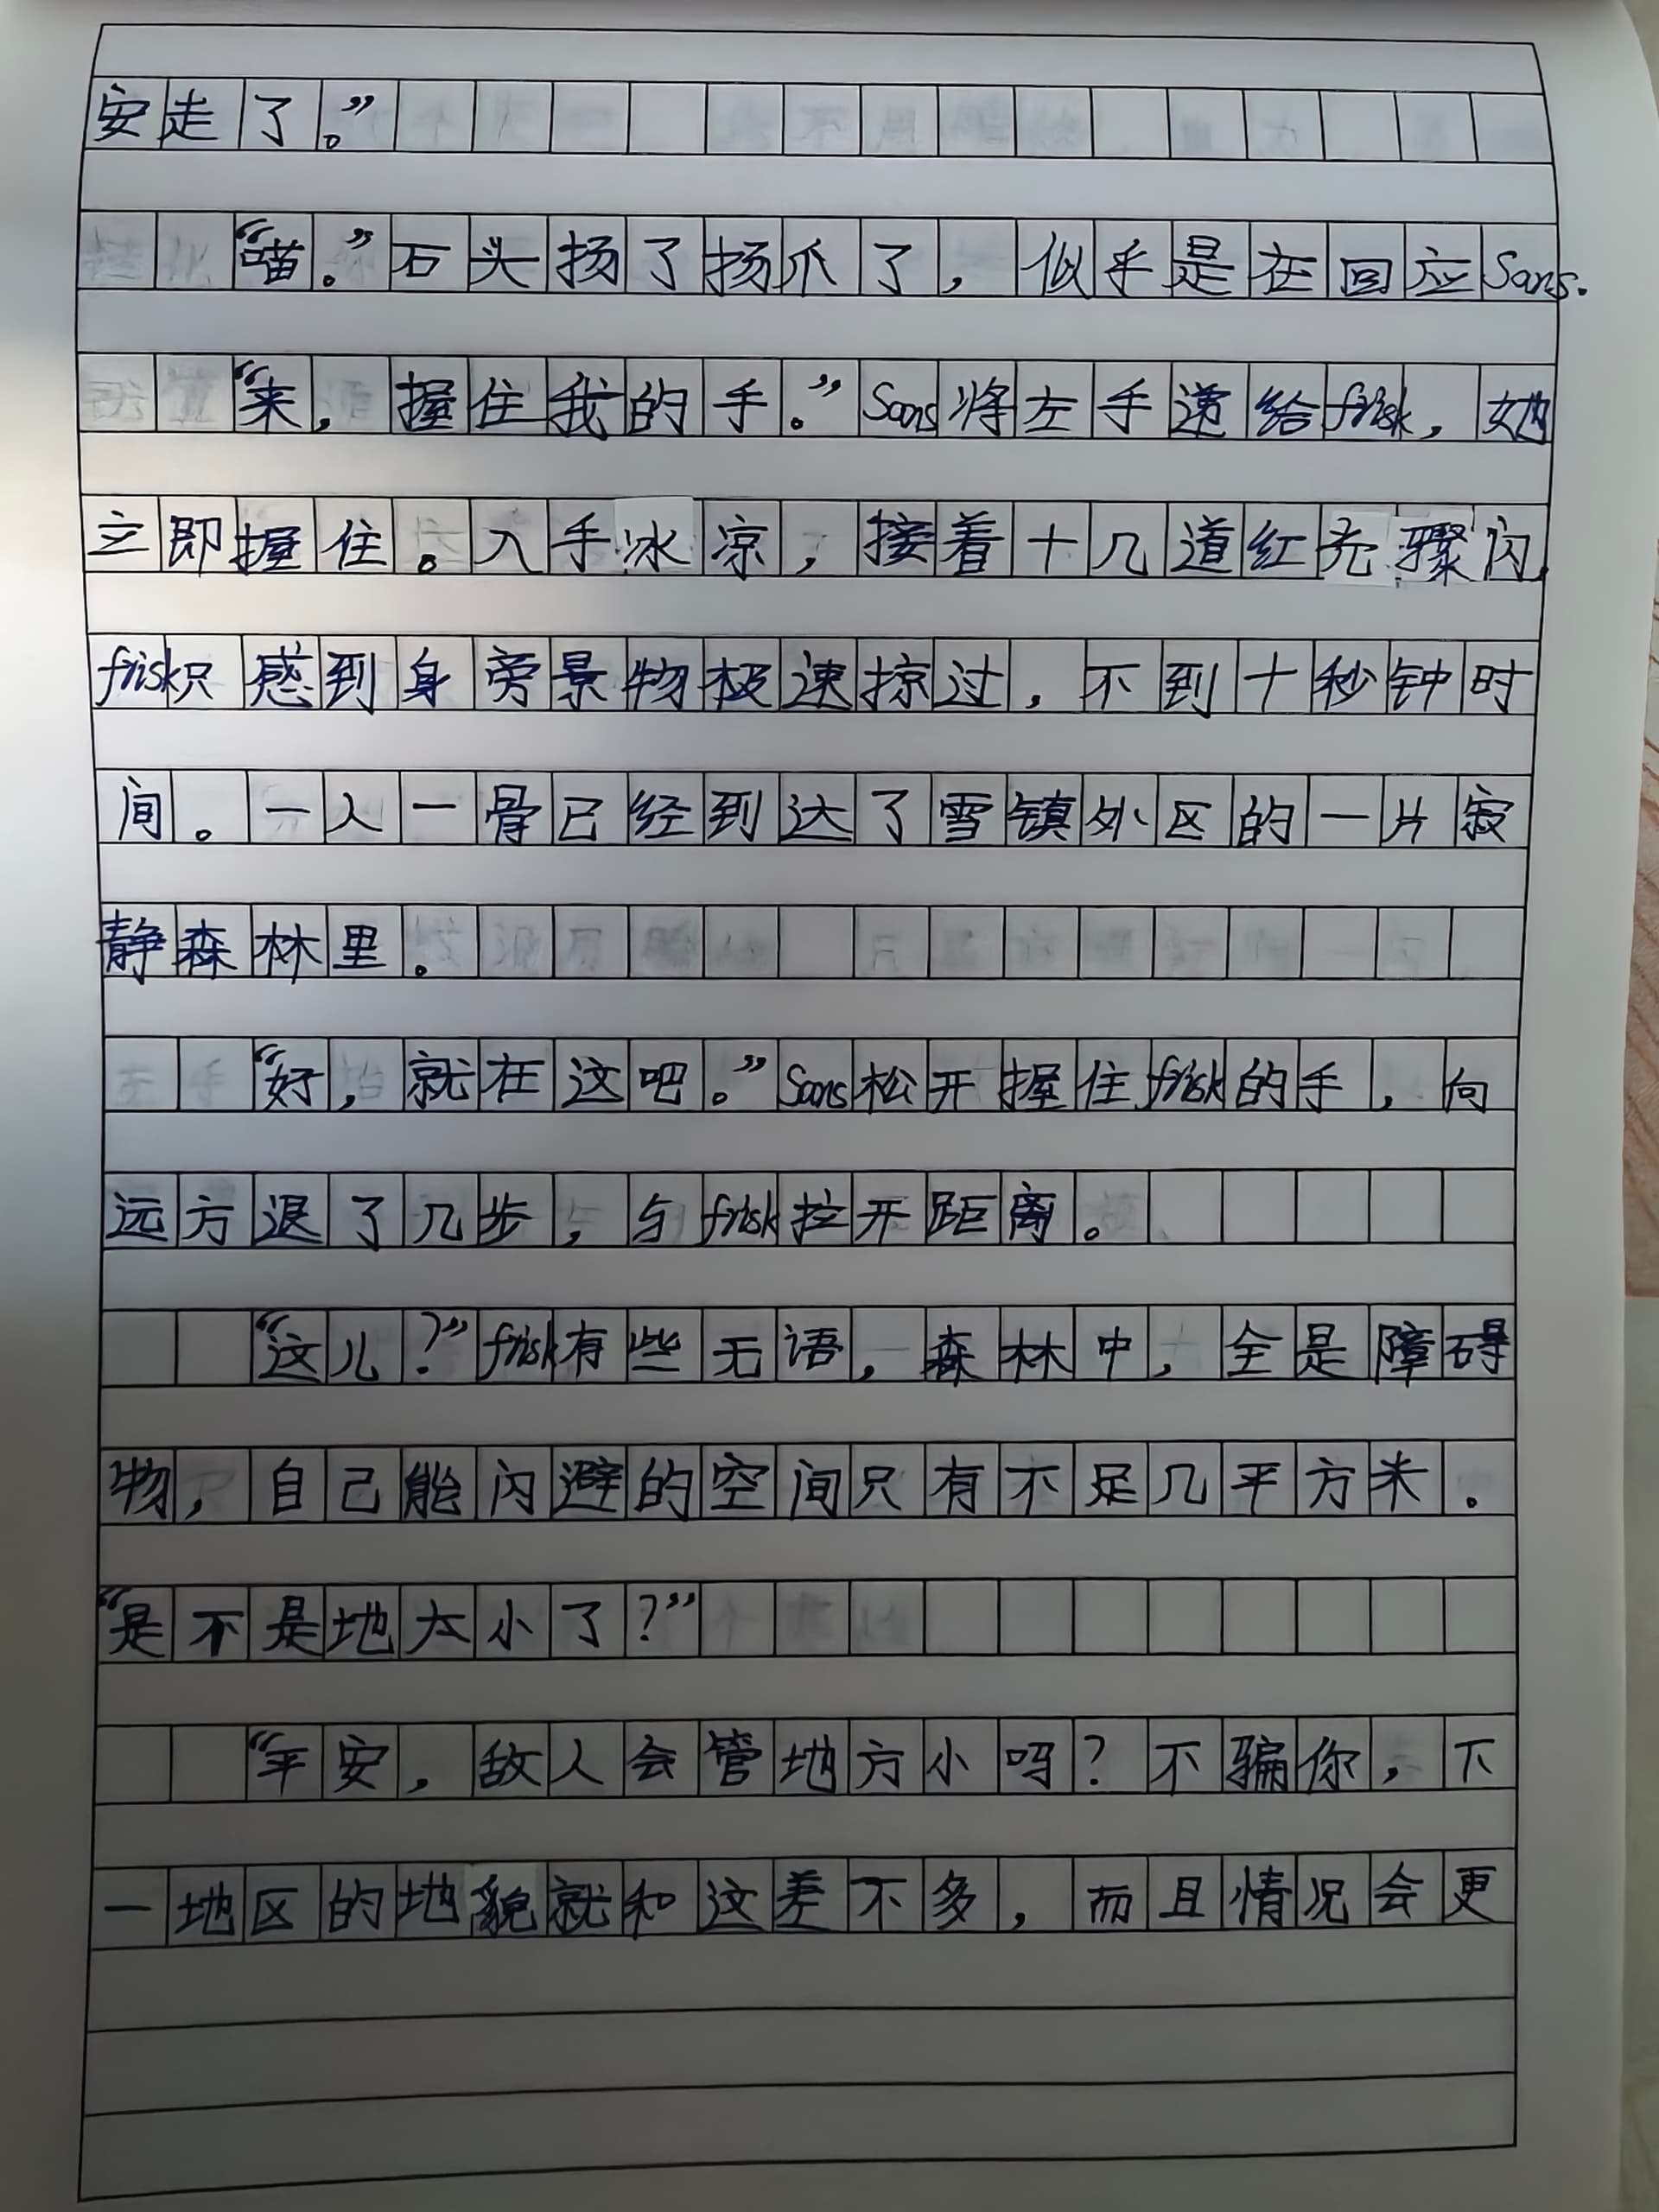 安走了。”
“喵。”石头扬了扬爪了，似乎是在回应Sans.
“来，握住我的手。”Sans将左手递给frisk，她
立即握住。入手冰凉，接着十几道红光骤闪，
frisk只感到身旁景物极速掠过，不到十秒钟时
间。一人一骨已经到达了雪镇外区的一片寂
静森林里。
“好，就在这吧。”Sans松开握住frisk的手，向
远方退了几步，与frisk拉开距离。
“这儿？”frisk有些无语，森林中，全是障碍
物，自己能闪避的空间只有不足几平方米。
“是不是地太小了？”
“平安，敌人会管地方小吗？不骗你，下
一地区的地貌就和这差不多，而且情况会更